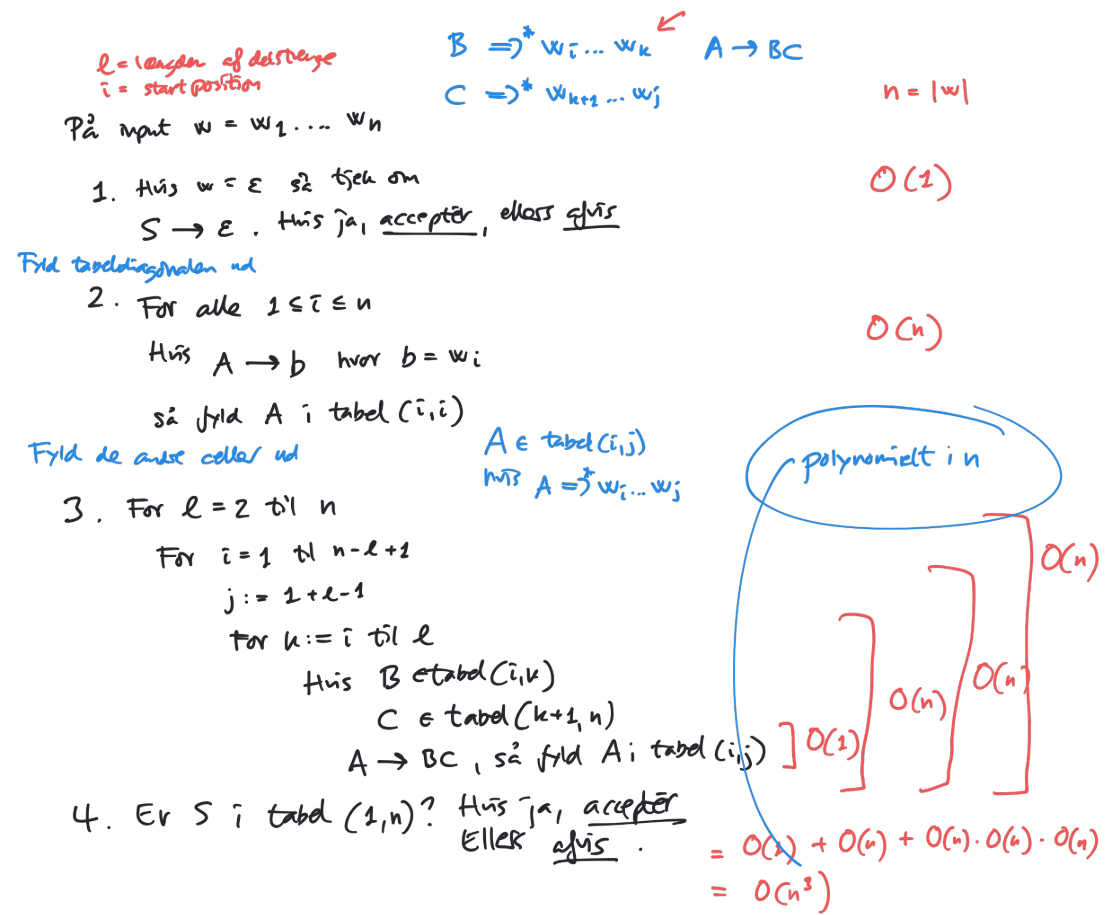 B ⇒* wi... wk A → BC
l = længden af delstrenge
i = startposition
C ⇒* wk+1 ... wj
n = |w|
På input w = w1 .... wn
1. Hvis w = ε så tjek om
O(1)
S → ε . Hvis ja, acceptér, ellers afvis
Fyld tabeldiagonalen ud
2. For alle 1 ≤ i ≤ n
O(n)
Hvis A → b hvor b = wi
så fyld A i tabel (i,i)
Fyld de andre celler ud
A ∈ tabel(i,j)
hvis A ⇒* wi...wj
polynomielt i n
3. For l = 2 til n
For i = 1 til n-l+1
O(n)
j := 1+l-1
For k := i til l
Hvis B ∈ tabel(i,k)
O(n)
O(n)
C ∈ tabel(k+1,n)
A → BC , så fyld A i tabel (i,j) ] O(1)
4. Er S i tabel (1,n)? Hvis ja, acceptér
Ellers afvis .
= O(1) + O(n) + O(n)·O(n)·O(n)
= O(n³)